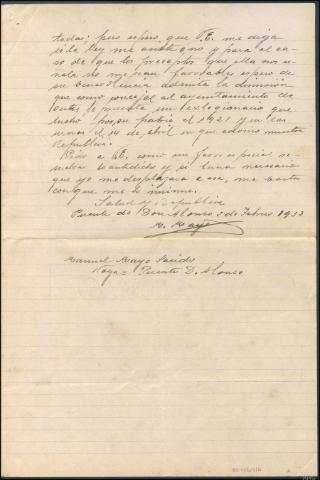 tadas; pero espero, que V.E. me diga
si la Ley me
so de que los preceptos que ella nos se
ñala no me sean favorables espero de
su benevolencia admita la dimisión
que como concejal al ayuntamiento de
le presenta un exlegionario que
luchó por su patria el 1921 y en las
urnas el 14 de abril en que advino nuestra
Republica.
Pido a V.E. como un favor especial re
suelva lo antedicho y si fuera necesario
que yo me desplazara a esa, me basta
con que me lo insinue.
Salud y Republica
Puente de Don Alonso 5 de Febrero 1933
M. Mayo
Manuel Mayo
Noya = Puente D. Alonso